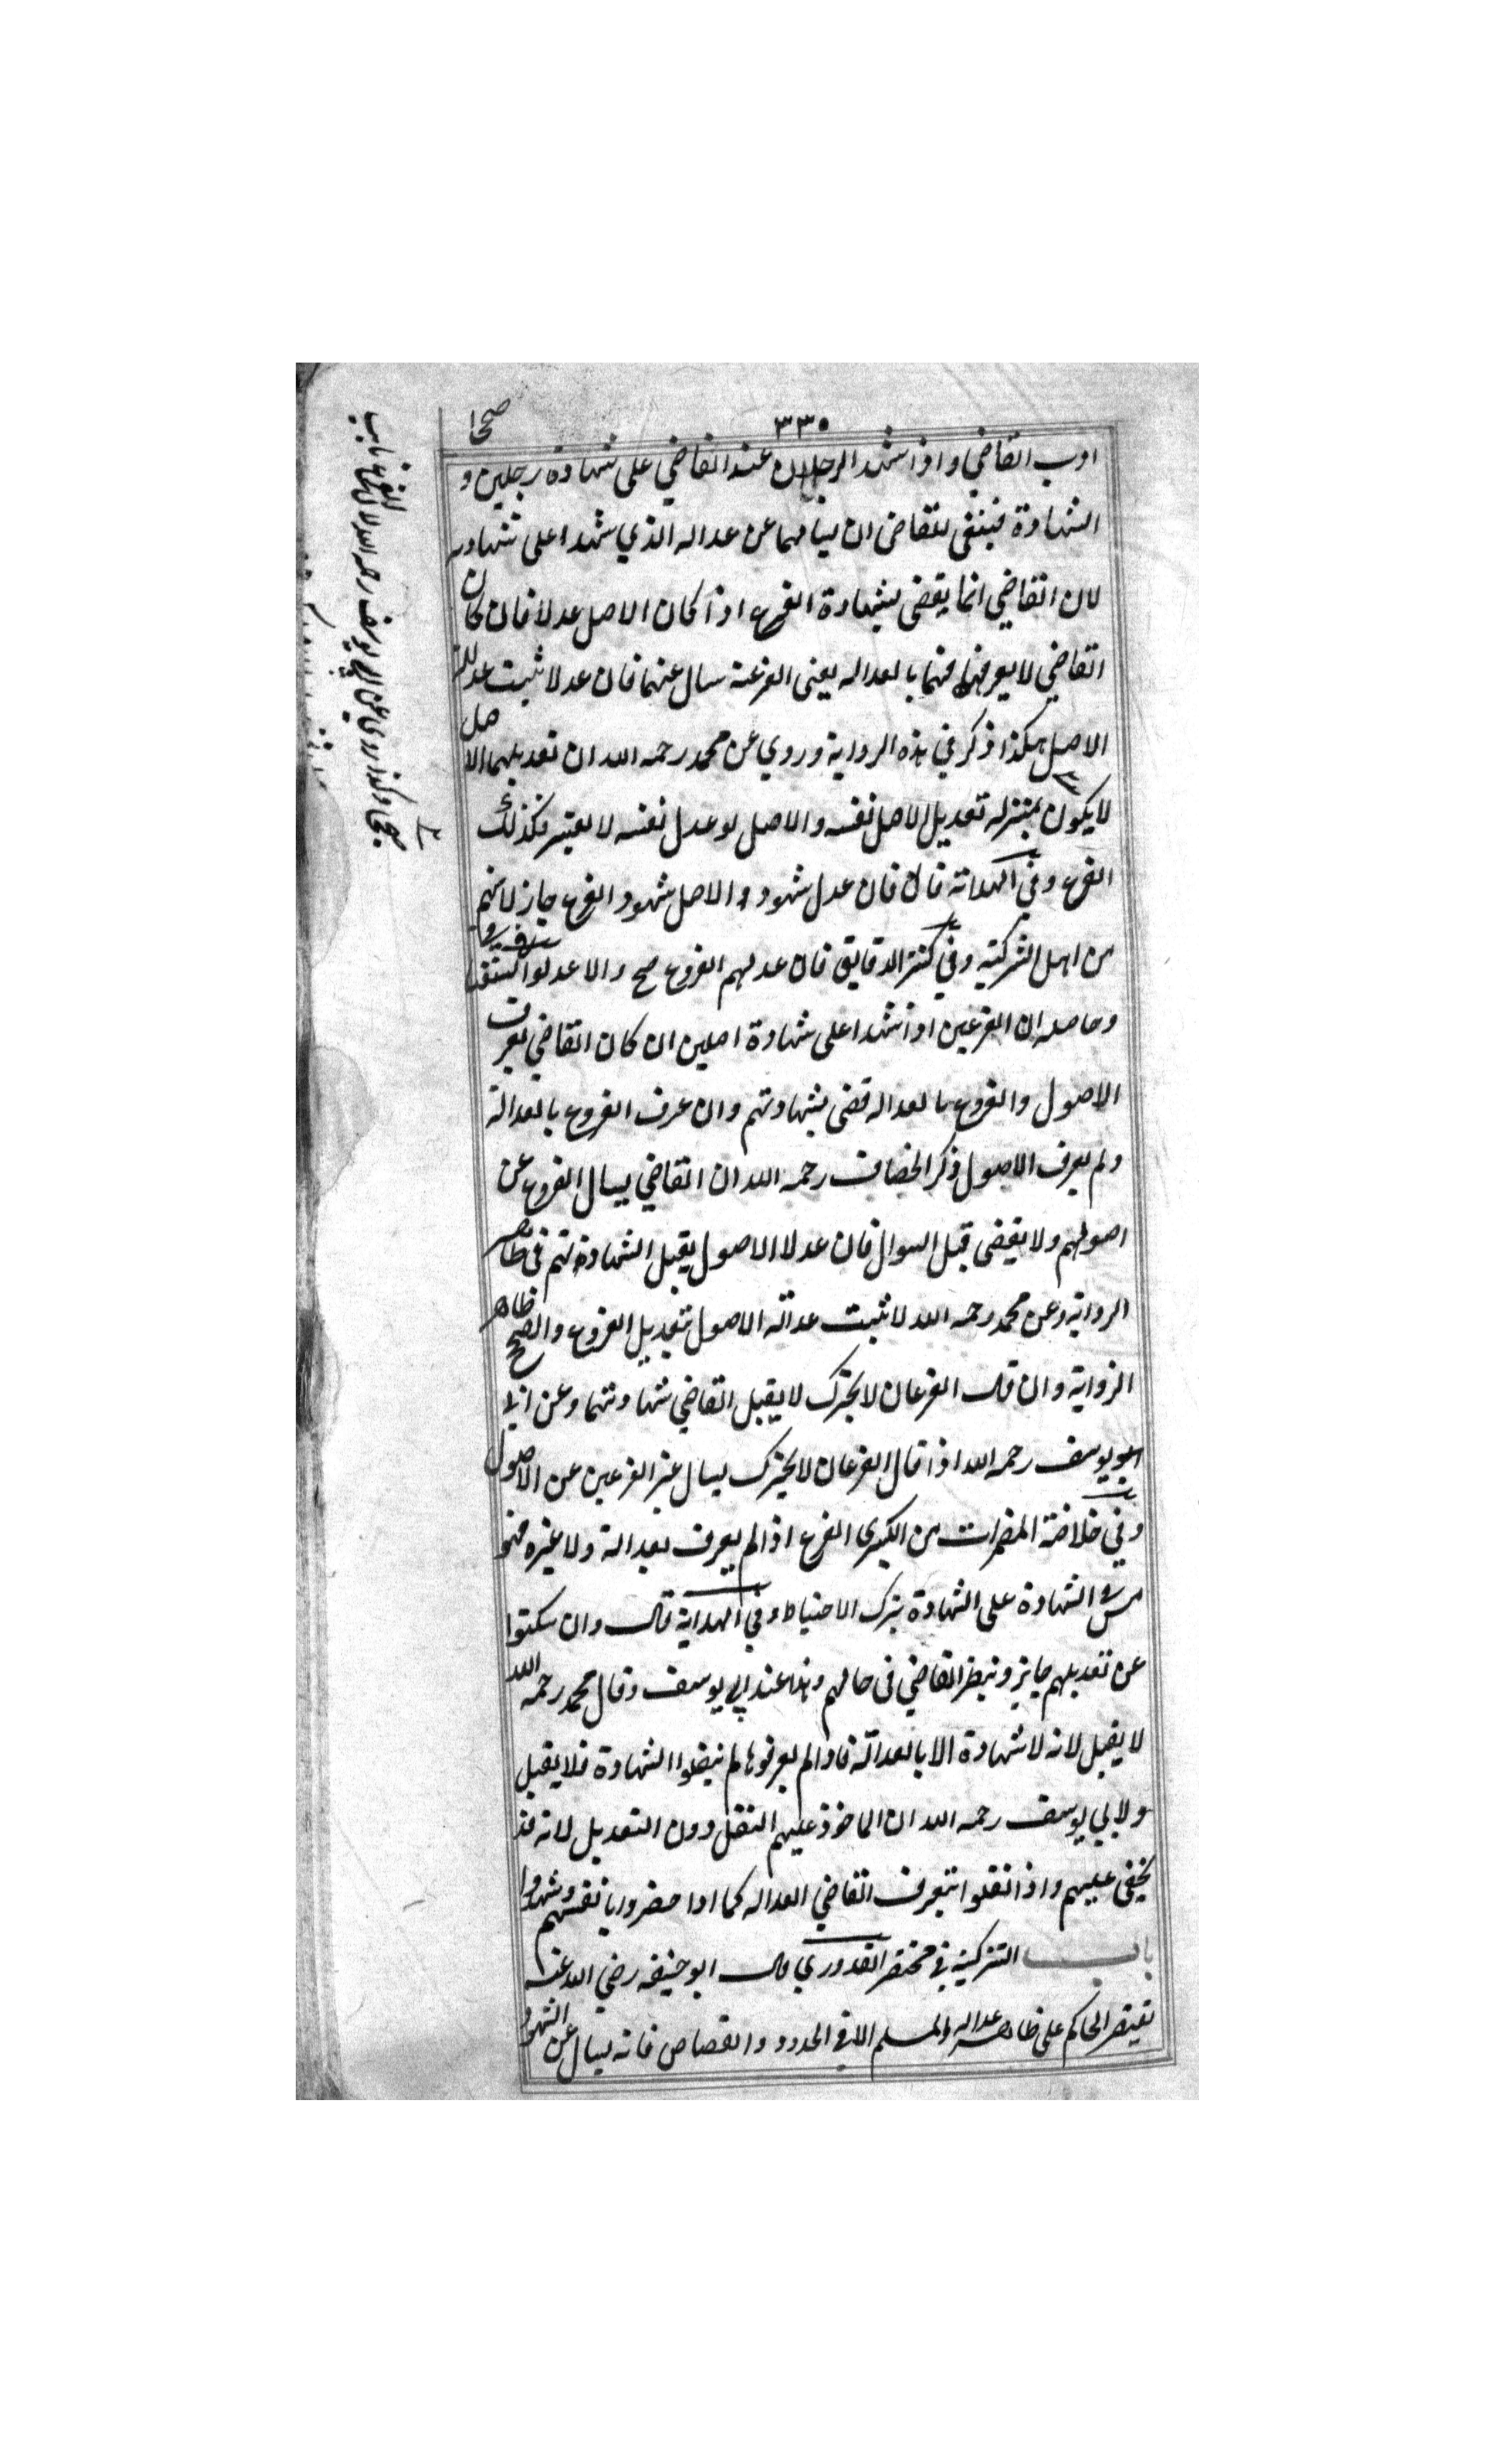 ٣٣٥
صححا
ادب القاضي واذا شهد الرجلان عند القاضي على شهادة رجلين و
الشهادة فينبغي للقاضي ان يسألهما عن عداله الذي شهدا على شهادته
لان القاضي انما يقضى بشهادة الفرع اذا كان الاصل عدلا فان كان
القاضي لا يعرفهما بالعداله يعنى الفرعين سال عنهما فان عدلا ثبت عدالة
الاصل هكذا ذكر في هذه الرواية وروي عن محمد رحمه الله ان تعديلهما الاصل
لا يكون بمنزله تعديل الاصل نفسه والاصل لو عدل نفسه لا يعتبر فكذلك
الفرع وفي الهداية قال فان عدل شهود الاصل شهود الفرع جاز لانهم
من اهل التزكية وفي كنز الدقايق فان عدلهم الفروع صح والا عدلوا
وحاصله ان الفرعين اذا شهدا على شهادة اصلين ان كان القاضي يعرف
الاصول والفروع بالعداله قضى بشهادتهم وان عرف الفروع بالعدالة
ولم يعرف الاصول ذكر الخصاف رحمه الله ان القاضي يسال الفروع عن
اصولهم ولا يقضى قبل السوال فان عدلا الاصول يقبل الشهادة تهم في ظاهر
الرواية وعن محمد رحمه الله لا تثبت عدالة الاصول بتعديل الفروع والصحيح ظاهر
الرواية وان قال الفرعان لا نخبرك لا يقبل القاضي شهادتهما وعن ابي
ابو يوسف رحمه الله اذا قال الفرعان لا نخبرك يسال غير الفرعين عن الاصول
وفي خلاصة المضمرات من الكبرى الفرع اذا لم يعرف بعدالة ولا غيره فهو
مسئ الشهادة على الشهادة بترك الاحتياط وفي الهداية قال وان سكتوا
عن تعديلهم جايز وينظر القاضي في حالهم وهذا عند ابي يوسف وقال محمد رحمه الله
لا يقبل لانه لا شهادة الا بالعدالة فاذا لم يعرفوها لم ينقلوا الشهادة فلا يقبل
ولابي يوسف رحمه الله ان الماخوذ عليهم النقل دون التعديل لانه قد
يخفى عليهم واذا نقلوا يتعرف القاضي العداله كما اذا حضروا بانفسهم وشهدوا
باب التزكية في مختصر القدوري قال ابو حنيفه رضي الله عنه
يقتصر الحاكم على ظاهر عداله المسلم الا في الحدود والقصاص فانه يسال عن الشهود